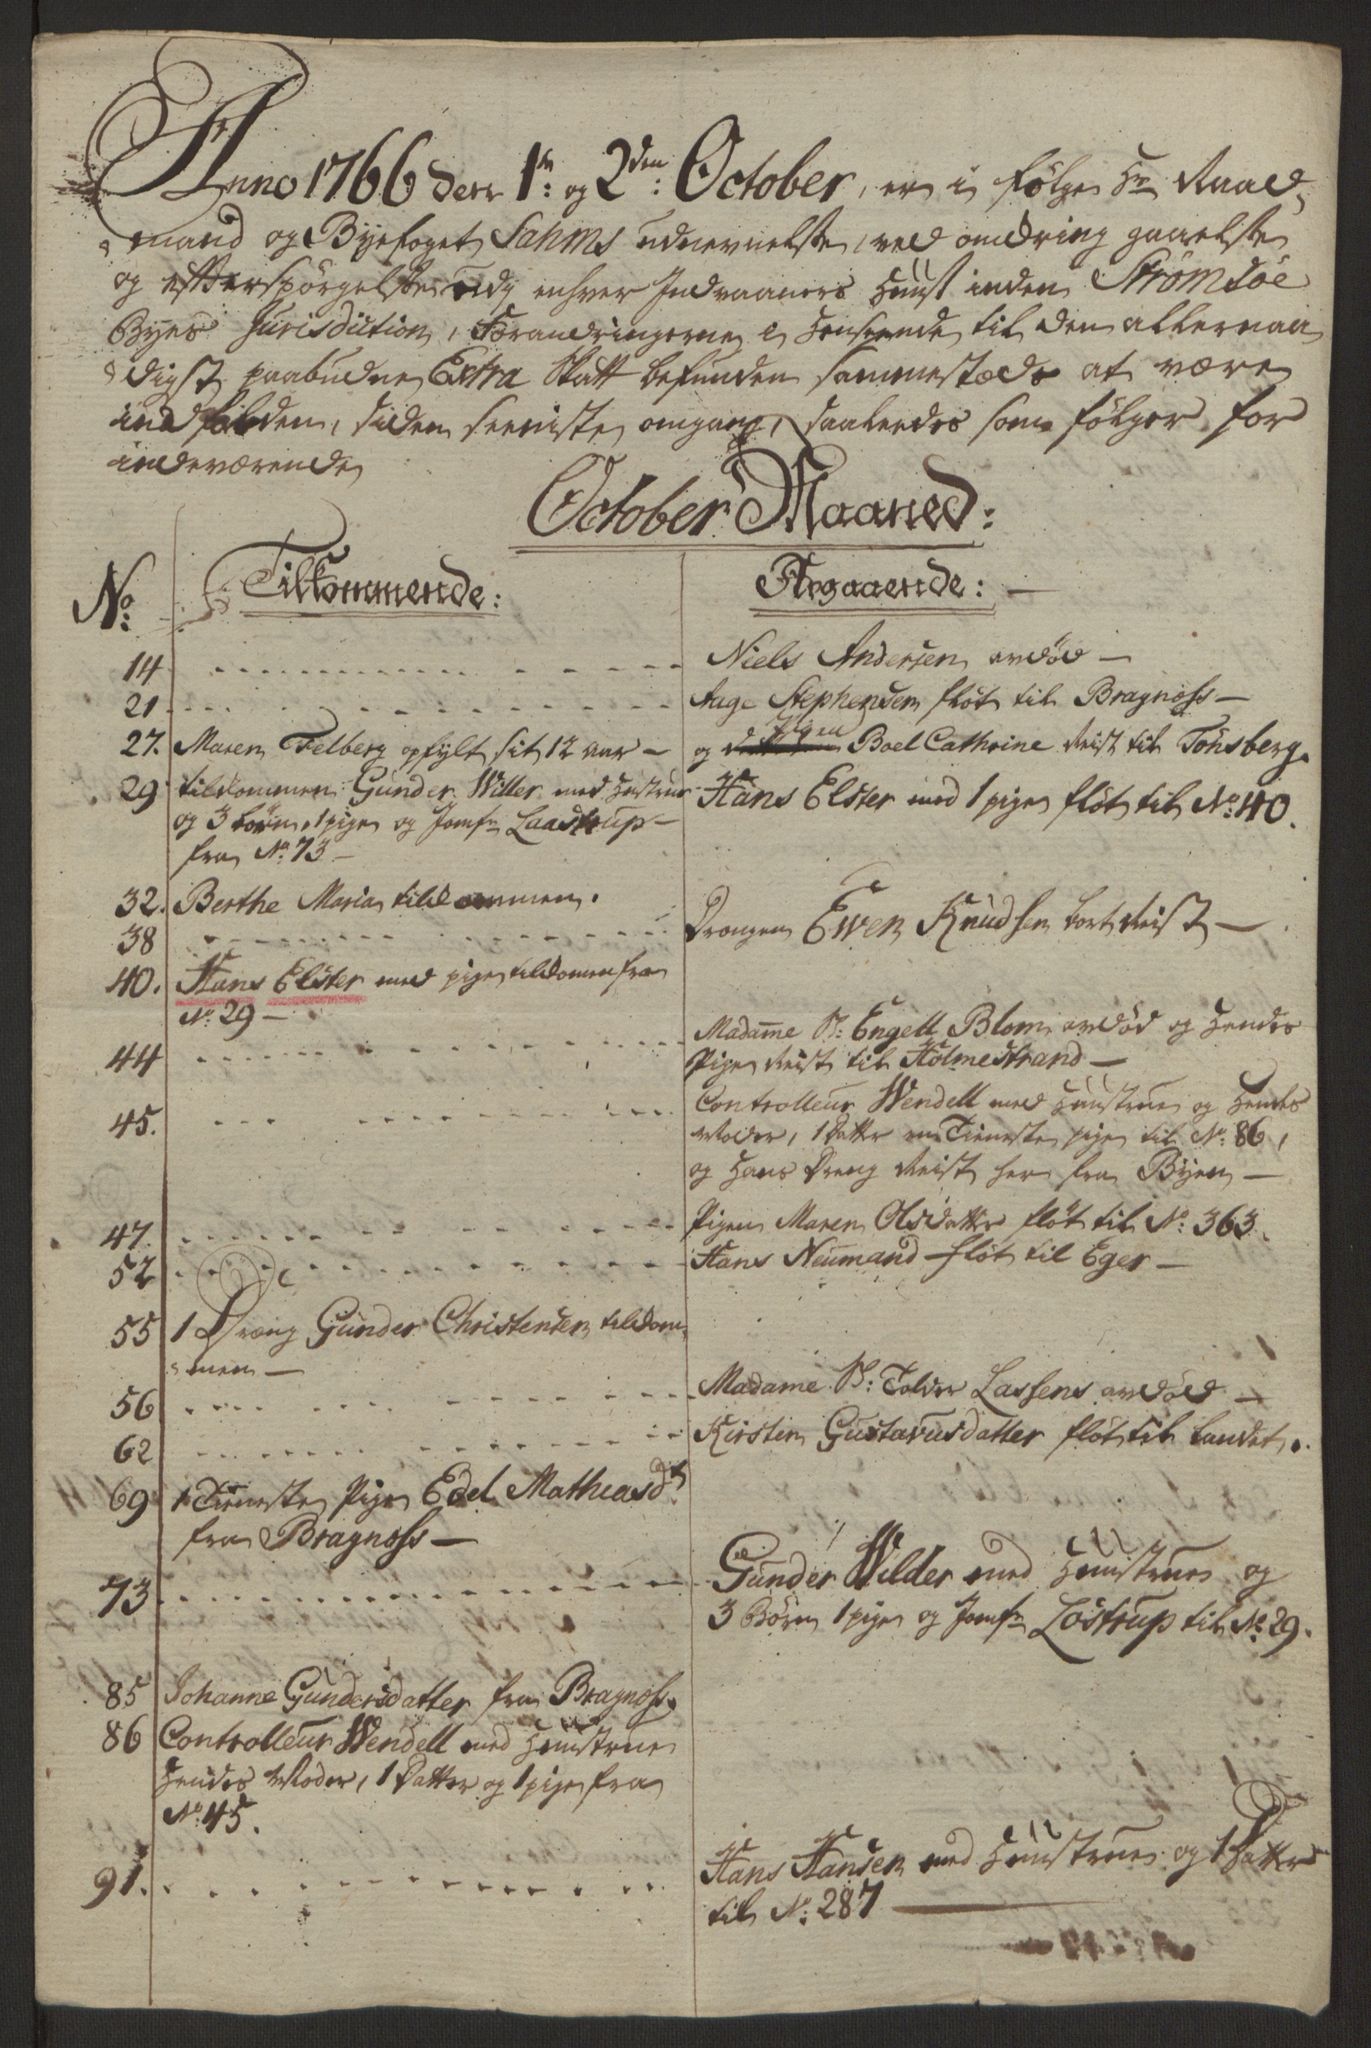 Anno 1766 den 1te og 2den October, er i følge Hr Raad
mand og Byefoget Sahms udnevnelse, ved omdring gaaelse
og efterspörgelse udj enhver Indvaaners Huus inden Strömsöe
Byes Jurisdiction, Forandringerne i henseende til den allernaa
digst paabudne Extra Skatt befunden sammestæds at være
indfalden, siden seeniste omgang, saaledes som følger for
indeværende
October Maaned:
No: Tilkommende: Afgaaende:
14 Niels Andersen avdød
21 Aage Stephensen fløt til Bragness
27. Maren Felberg opfylt sit 12 aar og Pigen Boel Cathrine Reist til Tönsberg.
29 tilkommen Gunder Willer med Hustrue Hans Elster med 1 pige fløt til No: 40.
og 3 børn, 1 pige og Jomfr Laastrup
fra No: 73
32. Berthe Maria tilkommen.
38 Drengen Ewen Knudsen bort Reist
40. Hans Elster med pige tilkomen fra
No: 29
44 Madame Sl: Engell Blom avdød og Hendes
Pige Reist til Holmestrand
45. Controlleur Wendell med Huustrue og Hendes
Moder, 1 Datter en Tieneste pige til No: 86,
og Hans Dreng Reist her fra Byen
47. Pigen Maren Olsdatter fløt til No: 363.
52 Hans Neumand fløt til Eger
55 1 Dreng Gunder Christensen tilkom
men
56 Madame Sl: Tolder Lassens avdød
62 Kirsten Gustavusdatter fløt til landet.
69 1 Tieneste Pige Edel Matheasdtr
fra Bragness
73 Gunder Wilder med Huustrue og
3 Børn 1 pige og Jomfr Löstrup til No: 29.
85 Johanne Gundersdatter fra Bragness.
86 Controlleur Wendell med Huustrue
Hendes Moder, 1 Datter og 1 pige fra
No: 45.
91. Hans Hansen med Huustrue og 1 Datter
til No: 287